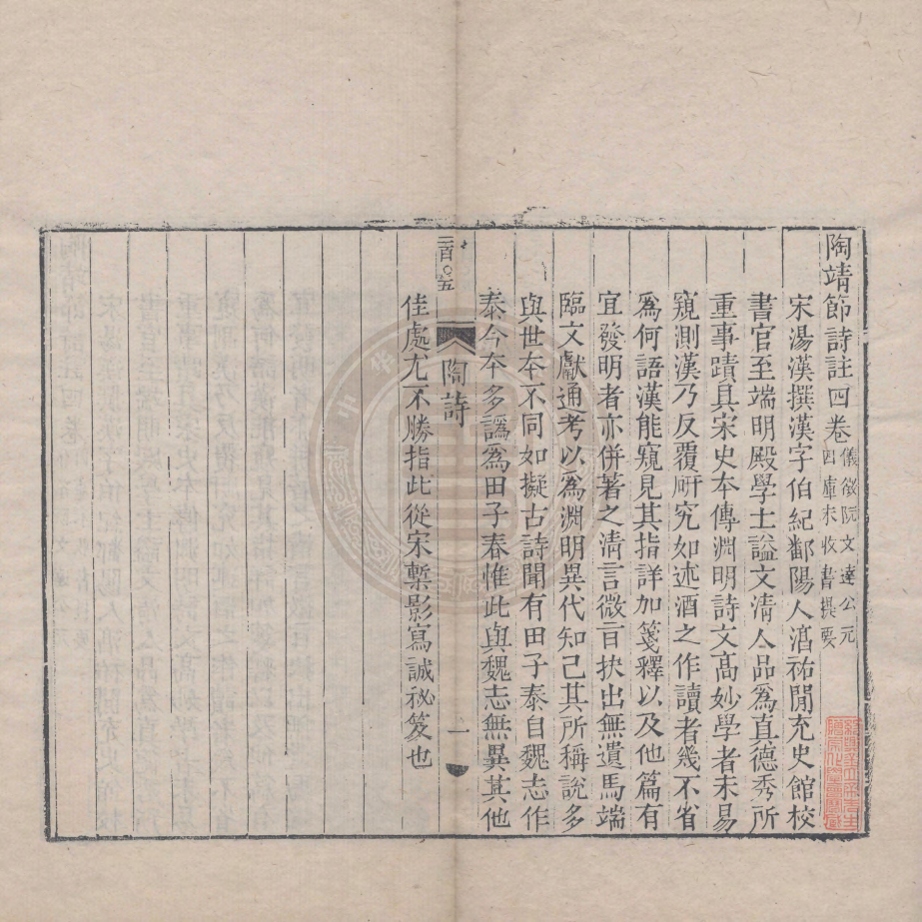 陶靖節詩註四卷儀徵阮文達公元四庫未收書提要
宋湯漢撰漢字伯紀鄱陽人湻祐閒充史館校
書官至端明殿學士謚文清人品爲直德秀所
重事蹟具宋史本傳淵明詩文高妙學者未易
窺測漢乃反覆硏究如述酒之作讀者幾不省
爲何語漢能窺見其指詳加箋釋以及他篇有
宜發明者亦併著之清言微旨抉出無遺馬端
臨文獻通考以爲淵明異代知己其所稱說多
與世本不同如擬古詩聞有田子泰自魏志作
泰今本多譌爲田子春惟此與魏志無異其他
陶詩
一
二百〇五
佳處尤不勝指此從宋槧影寫誠祕笈也